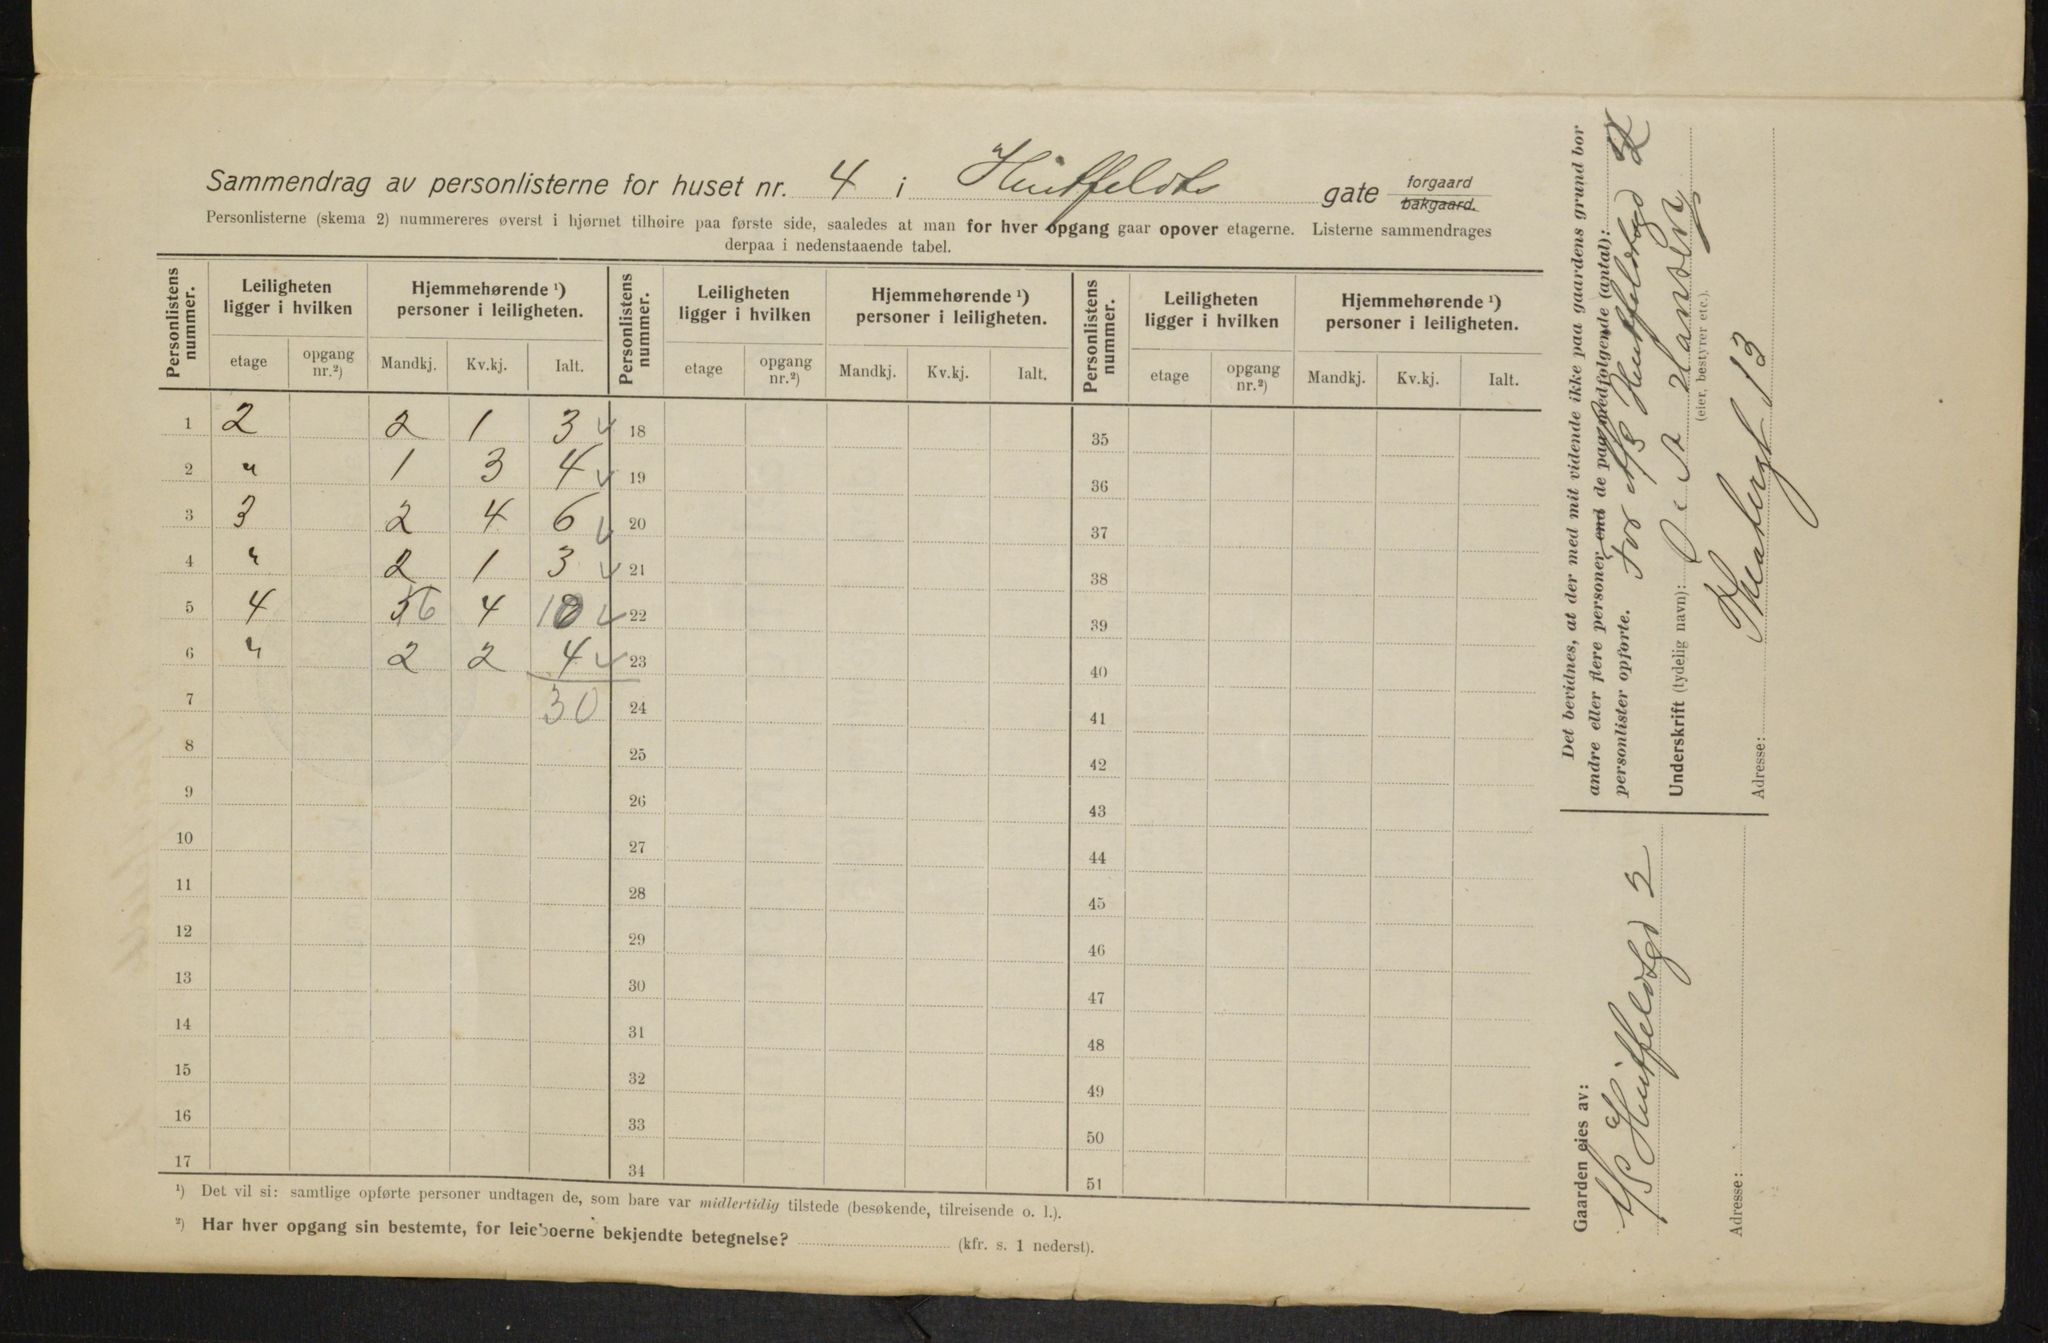 Sammendrag av personlisterne for huset nr. 4 i Huitfeldts gate forgaard bakgaard.
Personlisterne (skema 2) nummereres øverst i hjørnet tilhøire paa første side, saaledes at man for hver opgang gaar opover etagerne. Listerne sammendrages
derpaa i nedenstaaende tabel.
Personlistens nummer. Leiligheten ligger i hvilken Hjemmehørende ¹) personer i leiligheten. Personlistens nummer. Leiligheten ligger i hvilken Hjemmehørende ¹) personer i leiligheten. Personlistens nummer. Leiligheten ligger i hvilken Hjemmehørende ¹) personer i leiligheten.
etage opgang nr.²) Mandkj. Kv.kj. Ialt. etage opgang nr.²) Mandkj. Kv.kj. Ialt. etage opgang nr.²) Mandkj. Kv.kj. Ialt.
1 2 2 1 3 18 35
2 " 1 3 4 19 36
3 3 2 4 6 20 37
4 " 2 1 3 21 38
5 4 6 4 10 22 39
6 " 2 2 4 23 40
7 30 24 41
8 25 42
9 26 43
10 27 44
11 28 45
12 29 46
13 30 47
14 31 48
15 32 49
16 33 50
17 34 51
¹) Det vil si: samtlige opførte personer undtagen de, som bare var midlertidig tilstede (besøkende, tilreisende o. l.).
²) Har hver opgang sin bestemte, for leieboerne bekjendte betegnelse? (kfr. s. 1 nederst).
Det bevidnes, at der med mit vidende ikke paa gaardens grund bor
andre eller flere personer end de paa medfølgende (antal):
personlister opførte. For A/S Huitfeldtsgd 2
Underskrift (tydelig navn): Hansen
(eier, bestyrer etc.).
Adresse: 13
Gaarden eies av:
A/S Huitfeldtsgd 2
Adresse: